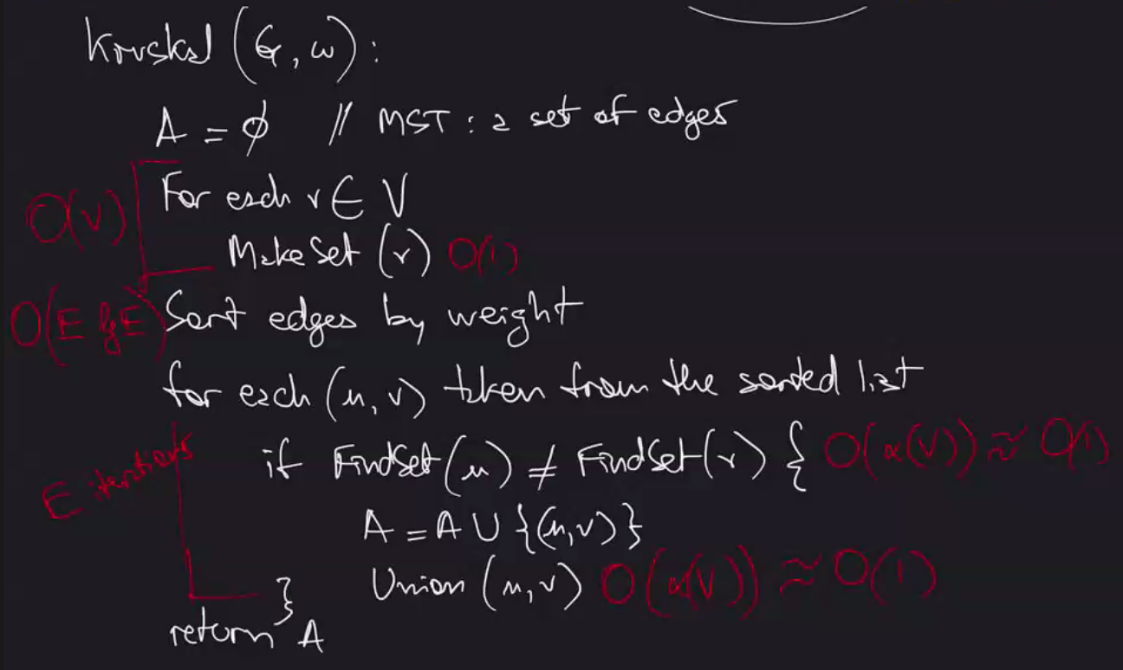 Kruskal (G, w):
A = ∅ // MST: a set of edges
O(V) For each v ∈ V
MakeSet (v) O(1)
O(E lg E) Sort edges by weight
for each (u, v) taken from the sorted list
E iterations
if FindSet(u) ≠ FindSet(v) { O(α(V)) ≈ O(1)
A = A ∪ {(u,v)}
Union (u,v) O(α(V)) ≈ O(1)
}
return A